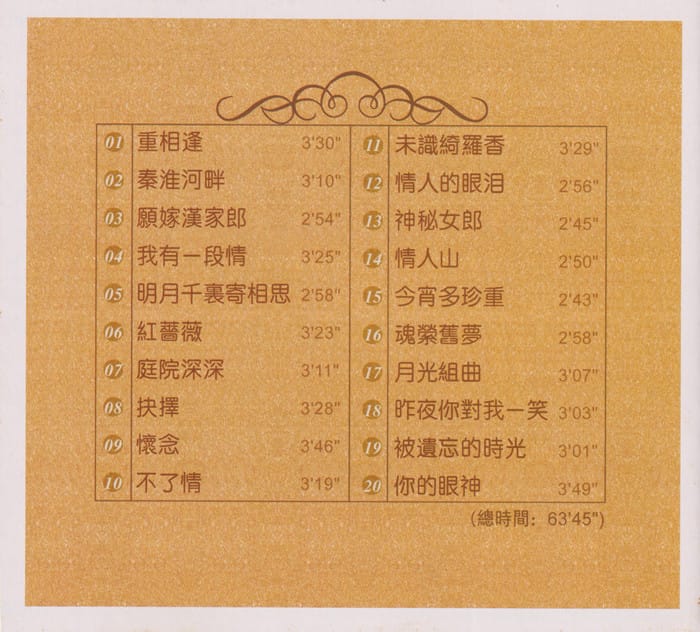 01 重相逢 3'30"
02 秦淮河畔 3'10"
03 願嫁漢家郎 2'54"
04 我有一段情 3'25"
05 明月千裏寄相思 2'58"
06 紅薔薇 3'23"
07 庭院深深 3'11"
08 抉擇 3'28"
09 懷念 3'46"
10 不了情 3'19"
11 未識綺羅香 3'29"
12 情人的眼泪 2'56"
13 神秘女郎 2'45"
14 情人山 2'50"
15 今宵多珍重 2'43"
16 魂縈舊夢 2'58"
17 月光組曲 3'07"
18 昨夜你對我一笑 3'03"
19 被遺忘的時光 3'01"
20 你的眼神 3'49"
(總時間：63'45")